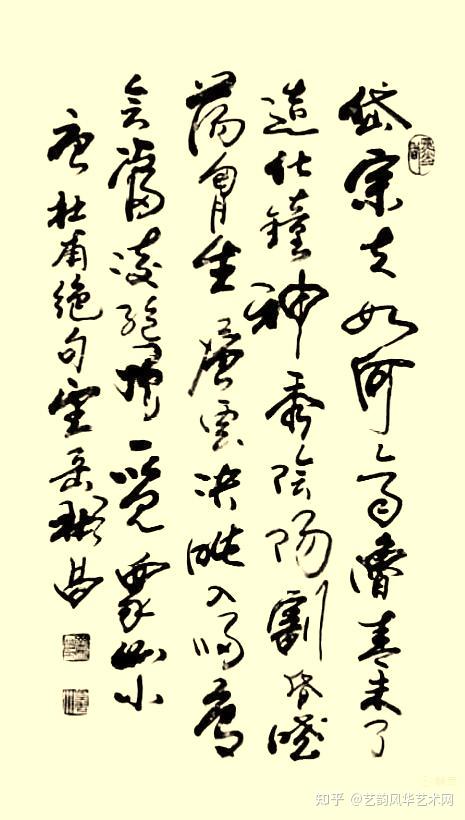 岱宗夫如何齊魯青未了
造化鐘神秀陰陽割昏曉
蕩胸生層雲決眦入歸鳥
會當凌絕頂一覽眾山小
唐杜甫絕句望岳
知乎 @艺韵风华艺术网